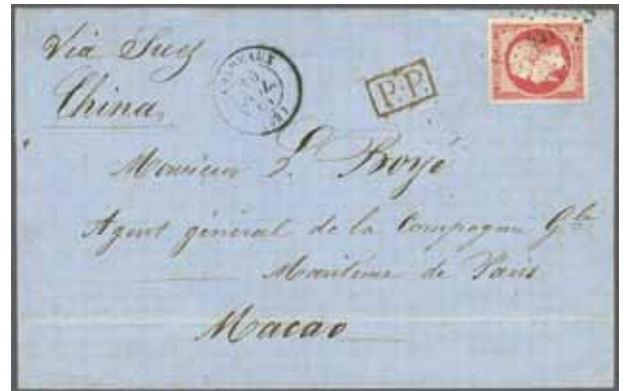 Via Suez
China,
BORDEAUX
P.P.
Monsieur L. Boyé
Agent général de la Compagnie Gle
Maritime de Paris
Macao